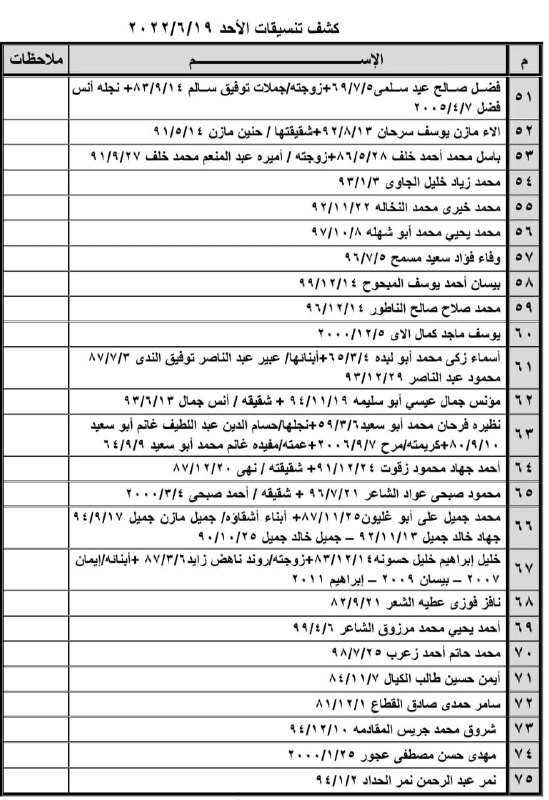 كشف تنسيقات الأحد ٢٠٢٢/٦/١٩
م الإســــم ملاحظات
٥١ فضل صالح عيد سلمى٦٩/٧/٥+زوجته/جملات توفيق سالم ٨٣/٩/١٤+ نجله أنس
فضل ٢٠٠٥/٤/٧
٥٢ الاء مازن يوسف سرحان ٩٢/٨/١٣+شقيقتها / حنين مازن ٩١/٥/١٤
٥٣ باسل محمد أحمد خلف ٨٦/٥/٢٨+زوجته / أميره عبد المنعم محمد خلف ٩١/٩/٢٧
٥٤ محمد زياد خليل الجاوى ٩٣/١/٣
٥٥ محمد خيرى محمد النخاله ٩٢/١١/٢٢
٥٦ محمد يحيي محمد أبو شهله ٩٧/١٠/٨
٥٧ وفاء فؤاد سعيد مسمح ٩٦/٧/٥
٥٨ بيسان أحمد يوسف المبحوح ٩٩/١٢/١٤
٥٩ محمد صلاح صالح الناطور ٩٦/١٢/١٤
٦٠ يوسف ماجد كمال الاى ٢٠٠٠/١٢/٥
٦١ أسماء زكى محمد أبو لبده ٦٥/٣/٤+أبنائها/ عبير عبد الناصر توفيق الندى ٨٧/٧/٣
محمود عبد الناصر ٩٣/١٢/٢٩
٦٢ مؤنس جمال عيسي أبو سليمه ٩٤/١١/١٩ + شقيقه / أنس جمال ٩٣/٦/١٣
٦٣ نظيره فرحان محمد أبو سعيد٥٩/٣/٦+نجلها/حسام الدين عبد اللطيف غانم أبو سعيد
٨٠/٩/١٠+كريمته/مرح ٢٠٠٦/٩/٧+عمته/مفيده غانم محمد أبو سعيد ٦٤/٩/٩
٦٤ أحمد جهاد محمود زقوت ٩١/١٢/٢٤+ شقيقته / نهى ٨٧/١٢/٢٠
٦٥ محمود صبحى عواد الشاعر ٩٦/٧/٢١ + شقيقه / أحمد صبحى ٢٠٠٠/٣/٤
٦٦ محمد جميل على أبو غليون٨٧/١١/٢٥+ أبناء أشقاؤه/ جميل مازن جميل ٩٤/٩/١٧
جهاد خالد جميل ٩٢/١١/١٣ – جميل خالد جميل ٩٠/١٠/٢٥
٦٧ خليل إبراهيم خليل حسونه٨٣/١٢/١٤+زوجته/روند ناهض زايد٨٧/٣/٦ +أبنائه/إيمان
٢٠٠٧ – بيسان ٢٠٠٩ – إبراهيم ٢٠١١
٦٨ نافز فوزى عطيه الشعر ٨٢/٩/٢١
٦٩ أحمد يحيي محمد مرزوق الشاعر ٩٩/٤/٦
٧٠ محمد حاتم أحمد زعرب ٩٨/٧/٢٥
٧١ أيمن حسين طالب الكيال ٨٤/١١/٧
٧٢ سامر حمدى صادق القطاع ٨١/١٢/١
٧٣ شروق محمد جريس المقادمه ٩٤/١٢/١٠
٧٤ مهدى حسن مصطفى عجور ٢٠٠٠/١/٢٥
٧٥ نمر عبد الرحمن نمر الحداد ٩٤/١/٢